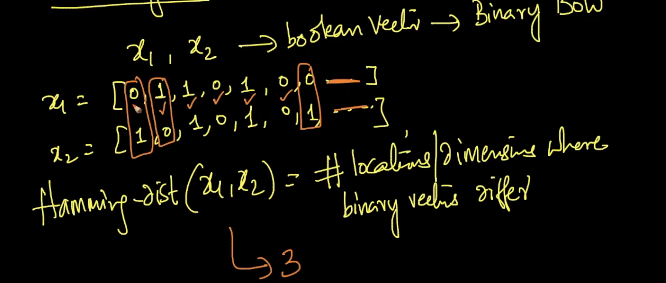 x₁, x₂ → boolean vector → Binary BOW
x₁ = [0, 1, 1, 0, 1, 0, 0 — ]
x₂ = [1, 0, 1, 0, 1, 0, 1 — ]
Hamming-dist(x₁, x₂) = # locations/dimensions where
binary vectors differ
↳ 3